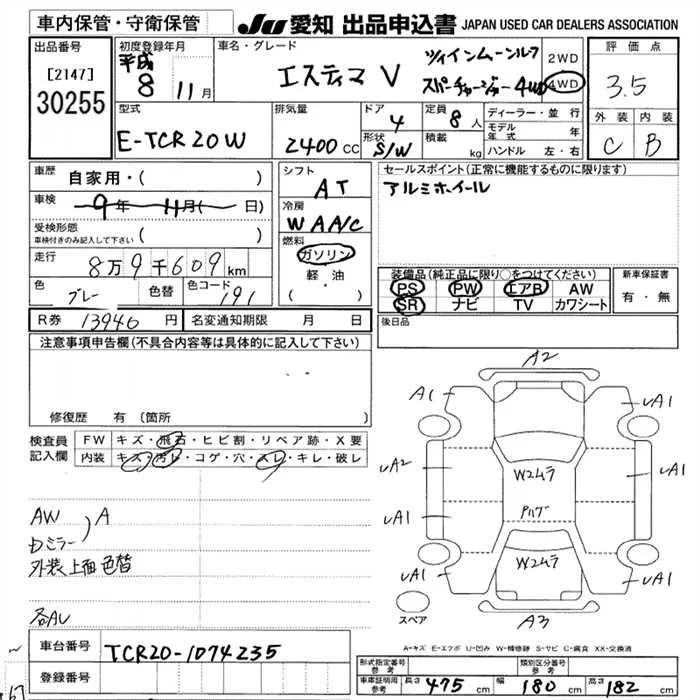 車内保管・守衛保管
JU 愛知 出品申込書 JAPAN USED CAR DEALERS ASSOCIATION
出品番号
[2147]
30255
初度登録年月
平成
8 11月
車名・グレード
エスティマ V
ツインムーンルーフ
スーパーチャージャー 4WD
2WD
4WD
評価点
3.5
外装 内装
C B
型式
E-TCR20W
排気量
2400 CC
ドア
4
形状
S/W
定員
8人
積載
kg
ディーラー・並行
モデル年式 年
ハンドル 左・右
車歴 自家用・( )
車検 9年 11月( 日)
受検形態
車検付きのみ記入して下さい ( )
走行 8万9千609km
色 グレー 色替 色コード 191
シフト
AT
冷房
WAA/C
燃料
ガソリン
軽・油
( ・ )
セールスポイント(正常に機能するものに限ります)
アルミホイール
装備品(純正品に限り○をつけてください)
PS PW エアB AW
SR ナビ TV カワシート
新車保証書
有・無
R券 13940円 名変通知期限 月 日
後日品
注意事項申告欄(不具合内容等は具体的に記入して下さい)
修復歴 有(箇所
検査員記入欄
FW キズ・飛石・ヒビ割・リペア跡・X要
内装 キズ・汚レ・コゲ・穴・スレ・キレ・破レ
AW
Dミラー
A
外装上面色替
各AU
A2
A1
UA1
UA2
UA1
UA1
UA1
UA1
UA1
W2ムラ
W2ムラ
A3
スペア
A-キズ E-エクボ U-凹み W-補修跡 S-サビ C-腐食 XX-交換済
車台番号 TCR20-1074235
登録番号
形式指定番号 参考
類別区分番号 参考
車庫証明用 参考
長さ 475 cm 幅 180 cm 高さ 182 cm